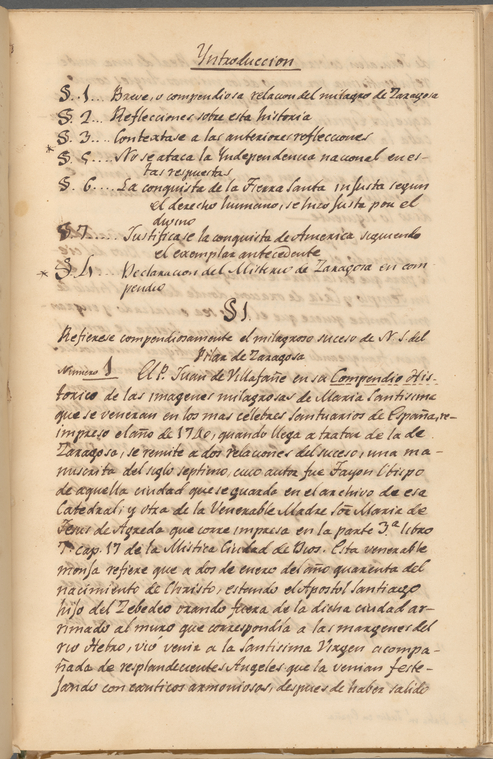 Yntroduccion
§. 1... Breve, o compendiosa relacion del milagro de Zaragosa
§. 2... Reflecciones sobre esta historia
§. 3.... Contextase a las anteriores reflecciones
* §. 5.... No se ataca la Yndependencia nacional en es-
tas respuestas
§. 6.... La conquista de la Tierra Santa injusta segun
el derecho humano, se hizo justa por el
divino
§. 7... Justificase la conquista de America siguiendo
el exemplar antecedente
* §. 4... Declaracion del Misterio de Zaragosa en com
pendio
§ 1.
Refierese compendiosamente el milagroso suceso de N. S. del
Pilar de Zaragosa
Numero 1 El P. Juan de Villafañe en su Compendio His-
torico de las imagenes milagrosas de Maria Santissima
que se veneran en los mas celebres santuarios de España, re-
impreso el año de 1740, quando llega a tratar de la de
Zaragosa, se remite a dos relaciones del suceso, una ma-
nuscrita del siglo septimo, cuio autor fue Tayon Obispo
de aquella ciudad que se guarda en el archivo de esa
Catedral; y otra de la Venerable Madre Sor Maria de
Jesus de Agreda que corre impresa en la parte 3.ª libro
7º cap. 17 de la Mistica Ciudad de Dios. Esta venerable
monja refiere que a dos de enero del año quarenta del
nacimiento de Christo, estando el Apostol Santiago
hijo del Zebedeo orando fuera de la dicha ciudad ar-
rimado al muro que correspondia a las margenes del
rio Hebro, vió venir a la Santisima Virgen acompa-
ñada de resplandecientes Angeles que la venian feste-
jando con canticos armoniosos, despues de haber salido